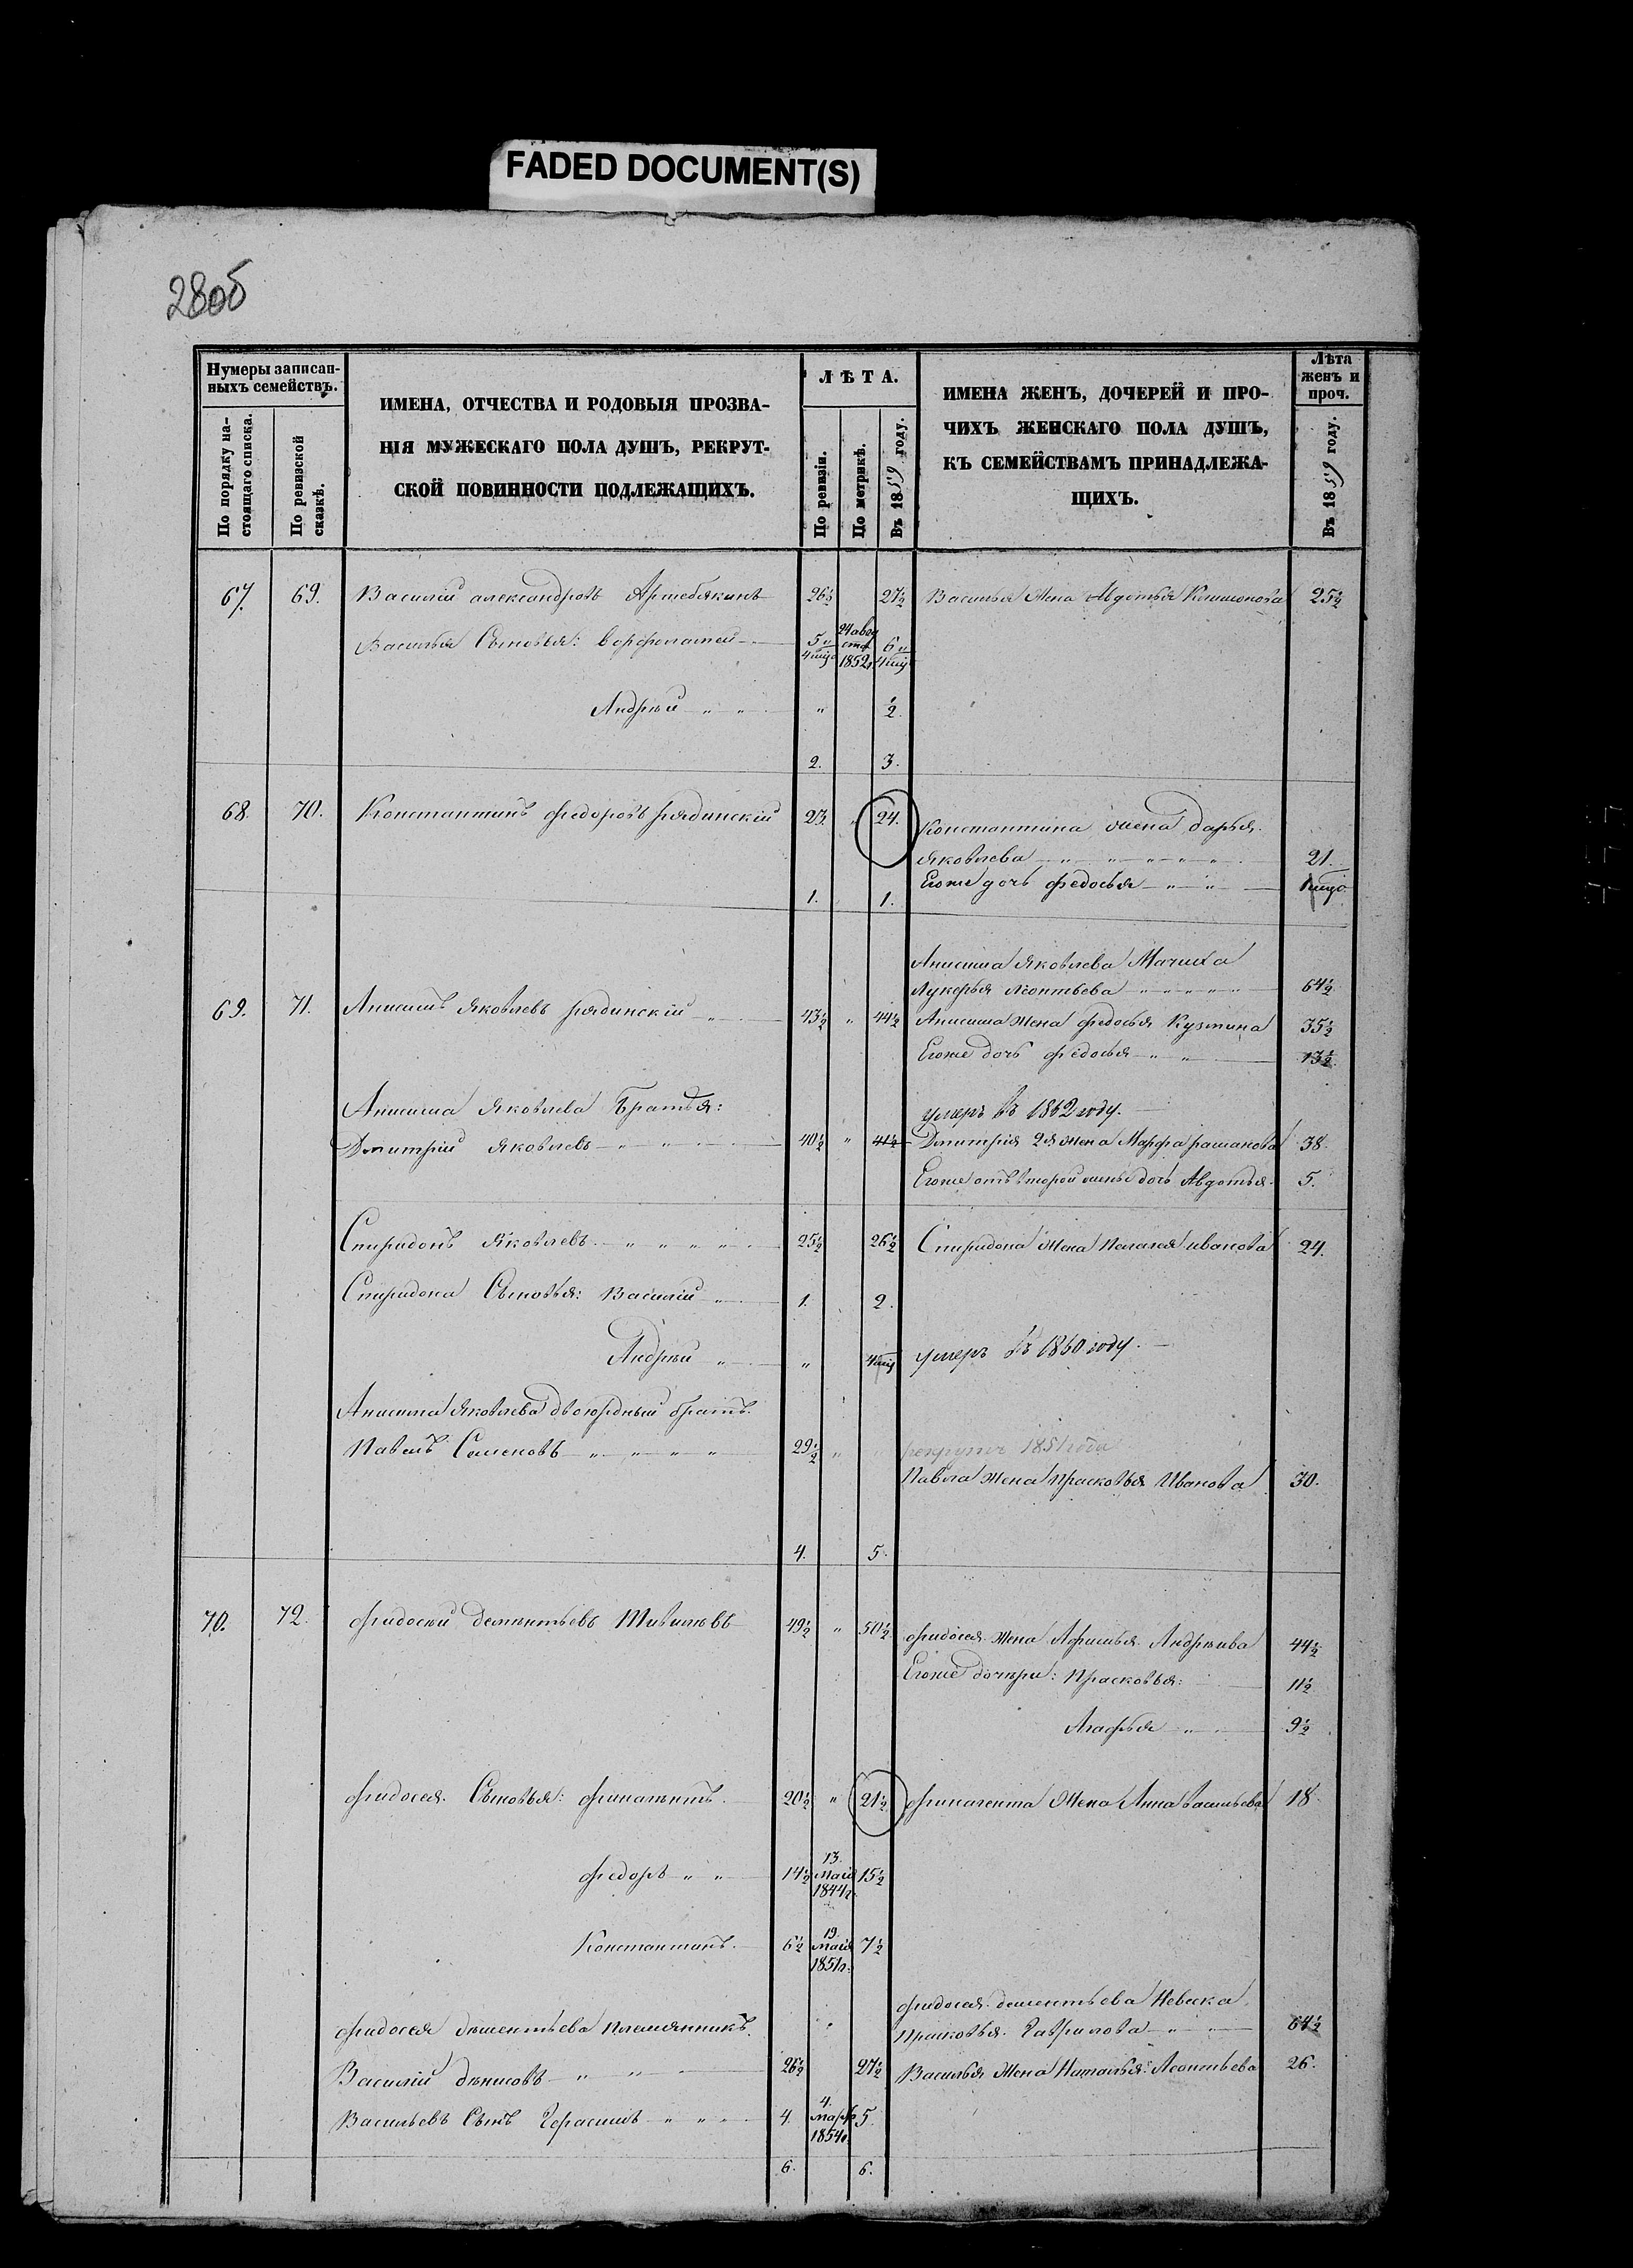 FADED DOCUMENT(S)
28об
Нумеры записан-
ныхъ семействъ.
По порядку на-
стоящаго списка.
По ревизской
сказкѣ.
ИМЕНА, ОТЧЕСТВА И РОДОВЫЯ ПРОЗВА-
НІЯ МУЖЕСКАГО ПОЛА ДУШЪ, РЕКРУТ-
СКОЙ ПОВИННОСТИ ПОДЛЕЖАЩИХЪ.
ЛѢТА.
По ревизіи.
По метрикѣ.
Въ 1859 году.
ИМЕНА ЖЕНЪ, ДОЧЕРЕЙ И ПРО-
ЧИХЪ ЖЕНСКАГО ПОЛА ДУШЪ,
КЪ СЕМЕЙСТВАМЪ ПРИНАДЛЕЖА-
ЩИХЪ.
Лѣта
женъ и
проч.
Въ 1859 году.
67. 69. Василій александровъ 26½ 27½ Василья Жена Авдотья 25½
Василья Сыновья: 5 и 4 мѣс 24 авгу ста 1852 6 и 4 мѣс
Андрѣй " " " 2.
2. 3.
68. 70. Константинъ федоровъ 23. 24. Константина жена дарья
яковлева " " " " " 21.
Егоже дочь федосья " "
1. 1.
Анисима яковлева Мачиха
Лукерья леонтьева " " " " " 64½
69. 71. Анисимъ яковлевъ " 43½ " 44½ Анисима жена федосья Кузмина 35½
Егоже дочь федосья " " 13½
Анисима яковлева братья: умеръ въ 1862 году.
Дмитрій яковлевъ " " 40½ " 41½ Дмитрія 2я жена Марфа 38.
Егоже отъ второй жены дочь Авдотья 5.
Спиридонъ яковлевъ " " " " " 25½ 26½ Спиридона жена Пелагея иванова 24.
Спиридона Сыновья: Василій " 1. 2.
Андрѣй " " 4 мѣс умеръ въ 1860 году.
Анисима яковлева двоюрдный братъ
Павелъ Семеновъ " " " " 29½ " " рекрутъ 1851 года
Павла жена прасковья Иванова 30.
4. 5.
70. 72. фидосѣй дементьевъ 49½ " 50½ фидосея жена Афимья Андрѣива 44½
Егоже дочѣри: Прасковья: 11½
Агафья " 9½
фидосея Сыновья: 20½ " 21½ Жена Анна васильева 18.
федоръ " " 14½ 13. Маія 1844г. 15½
Константинъ. 6½ 19. маія 1851г. 7½
фидосея дементьева Невеска
фидосея дементьева племянникъ. прасковья Гаврилова " " 64½
Василій дѣнисовъ " " 26½ 27½ Василья Жена Наталья Леонтьева 26.
Васильевъ Сынъ Герасимъ " " " 4. 4. март 1854г. 5.
6. 6.